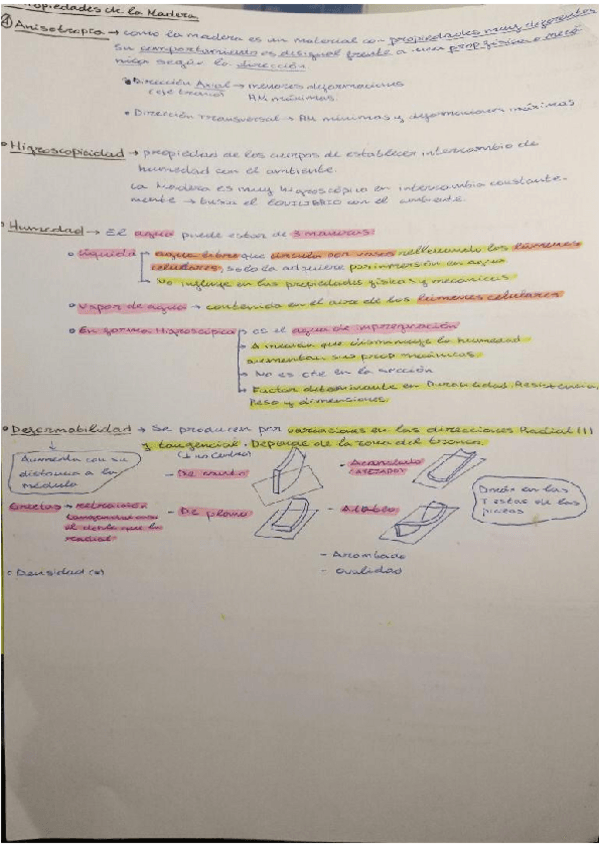 Propiedades de la Madera
Anisotropía → como la madera es un material con propiedades muy diferentes
su comportamiento es desigual frente a una prop física o mecá
nica según la dirección
Dirección Axial → menores deformaciones
(eje tronco) RM máximas.
Dirección transversal → RM mínimas y deformaciones máximas
Higroscopicidad → propiedad de los cuerpos de establecer intercambio de
humedad con el ambiente.
La madera es muy higroscópica en intercambia constante-
mente → busca el equilibrio con el ambiente.
Humedad → El agua puede estar de 3 maneras
Líquida agua libre que circula por vasos rellenando los lúmenes
celulares, solo la adquiere por inmersión en agua
No influye en las propiedades físicas y mecánicas
Vapor de agua → contenido en el aire de los lúmenes celulares
En forma Higroscópica es el agua de impregnación
A medida que disminuye la humedad
aumentan sus prop mecánicas
No es cte en la sección
Factor determinante en Durabilidad, Resistencia,
Peso y dimensiones.
Deformabilidad → Se producen por variaciones en las direcciones Radial
y tangencial. Depende de la zona del tronco.
Aumenta con su
distancia a la
médula
- De canto
- Acanalado
Directo en las
Testas de las
piezas
tangencial
el doble que la
radial
- De plano
- Alabeo
- Acombado
Densidad